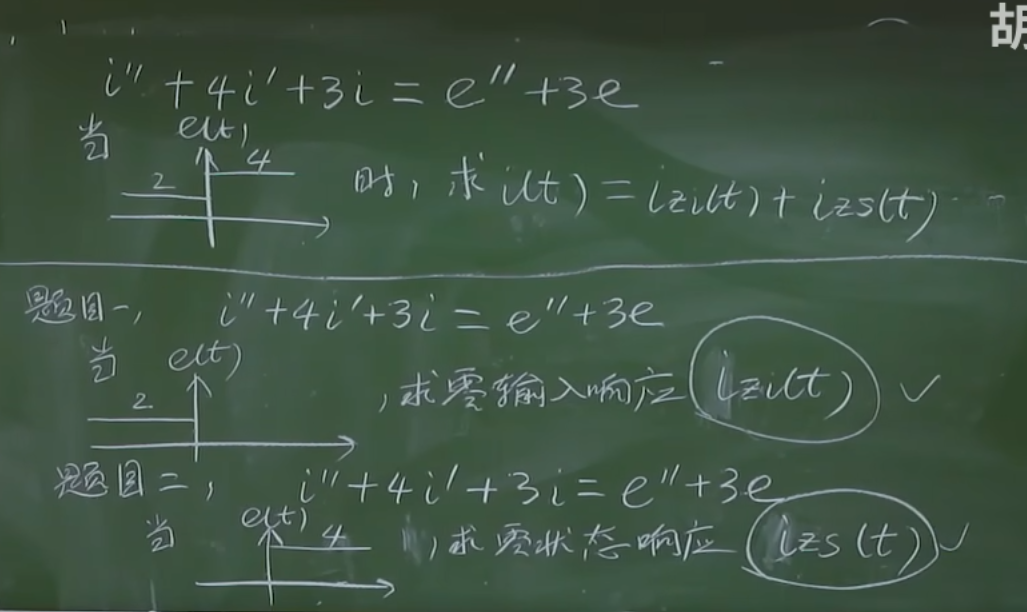 胡
i'' + 4i' + 3i = e'' + 3e
当 e(t) 2 4 时, 求 i(t) = izi(t) + izs(t)
题目一, i'' + 4i' + 3i = e'' + 3e
当 e(t) 2 , 求零输入响应 izi(t) ✓
题目二, i'' + 4i' + 3i = e'' + 3e
当 e(t) 4 , 求零状态响应 izs(t) ✓